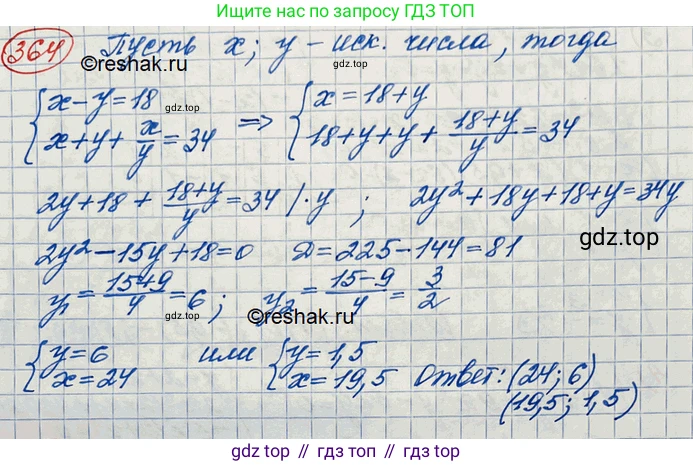 Ищите нас по запросу ГДЗ ТОП
364 Пусть x; y – иск. числа, тогда
©reshak.ru
gdz.top
{ x - y = 18
x + y + x/y = 34
=> { x = 18 + y
18 + y + y + (18+y)/y = 34
2y + 18 + (18+y)/y = 34 | · y ; 2y² + 18y + 18 + y = 34y
gdz.top
2y² - 15y + 18 = 0 D = 225 - 144 = 81
y₁ = (15+9)/4 = 6 ; y₂ = (15-9)/4 = 3/2
gdz.top
©reshak.ru
{ y = 6
x = 24
или { y = 1,5
x = 19,5
Ответ: (24; 6)
(19,5; 1,5)
gdz.top
gdz.top // гдз.топ // gdz.top // гдз.топ